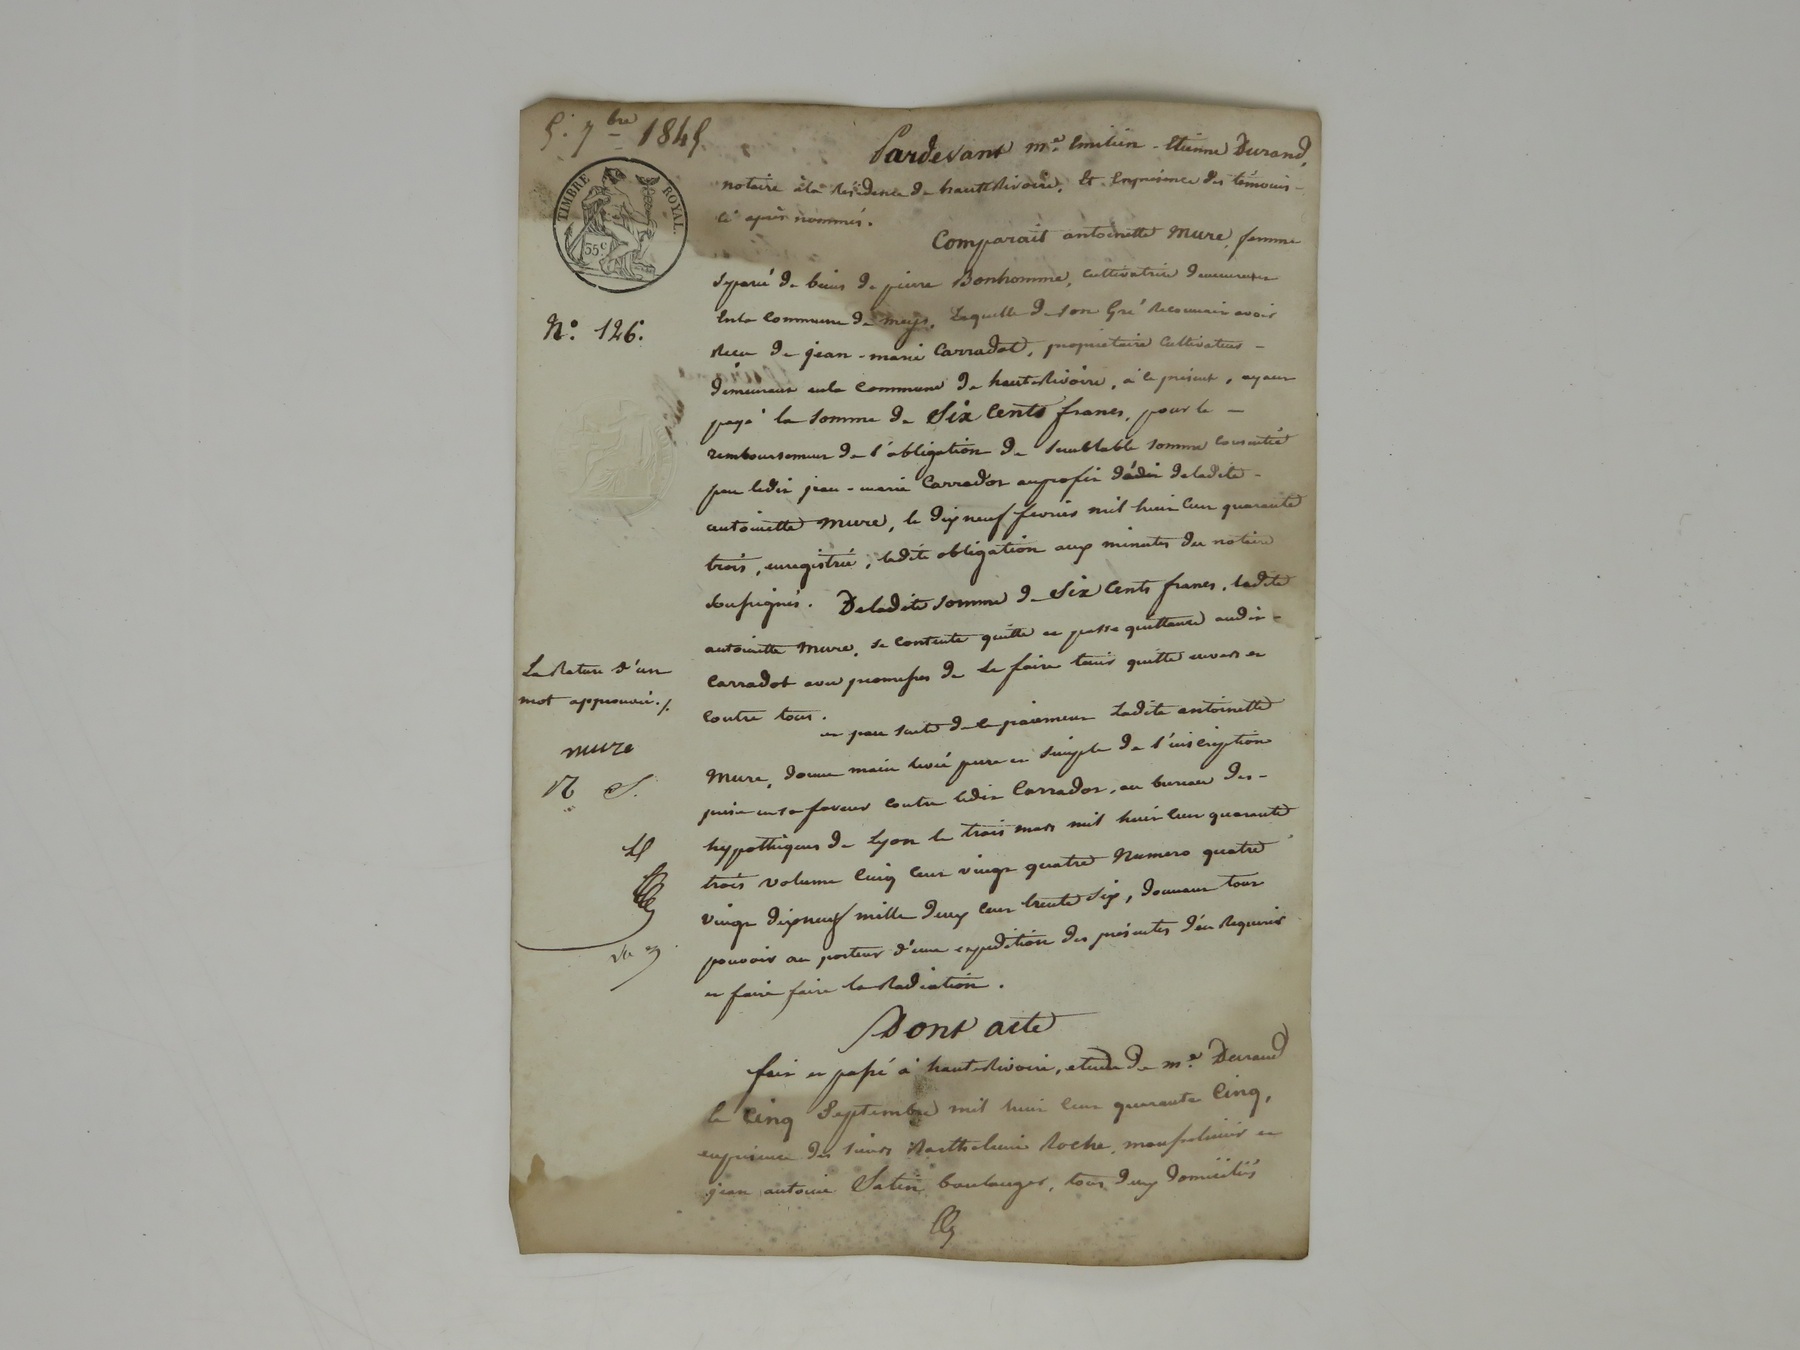 5. 7bre 1845
TIMBRE ROYAL.
35c
Pardevant Me. Emilien - Etienne Durand,
notaire à la Residence de hauteRivoire, Et Enpresence des témoins -
ci après nommés.
Comparait antoinette Mure, femme
separée de biens de pierre Bonhomme, cultivatrice demeurant
Enla commune de meys, Laquelle de son Gré Reconnait avoir
N.o 126.
Recu de jean - marie Carradot, propriétaire Cultivateur -
demeurant enla commune de hauteRivoire, à ce présent, ayant
payé la somme de Six Cents francs, pour le -
remboursement de l'obligation de semblable somme consentie
par ledit jean - marie Carradot auprofit deladite -
antoinette Mure, le dixneuf fevrier mil huit cent quarante
trois, enregistrée, ladite obligation aux minutes du notaire
soussigné. Deladite somme de Six Cents francs, ladite
antoinette Mure, se contente quitte et passe quittance audit -
Carradot avec promesses de le faire tenir quitte envers et
contre tous.
La Rature d'un
mot approuvée ./.
mure
R S.
et par suite de ce paiement Ladite antoinette
Mure, donne main levée pure et simple de l'inscription
prise ensa faveur contre ledit Carradot, au bureau des -
hypothèques de Lyon le trois mars mil huit cent quarante
trois volume Cinq cent vingt quatre Numero quatre
vingt dixneuf mille deux cent trente six, donnant tout
pouvoir au porteur d'une expedition des présentes d'en Requerir
et faire faire la Radiation.
Dont acte
fait et passé à hauteRivoire, etude de Me. Durand
le Cinq Septembre mil huit cent quarante Cinq,
enpresence des sieurs Barthelemi Roche, et
jean antoine Satin boulanger, tous deux domiciliés